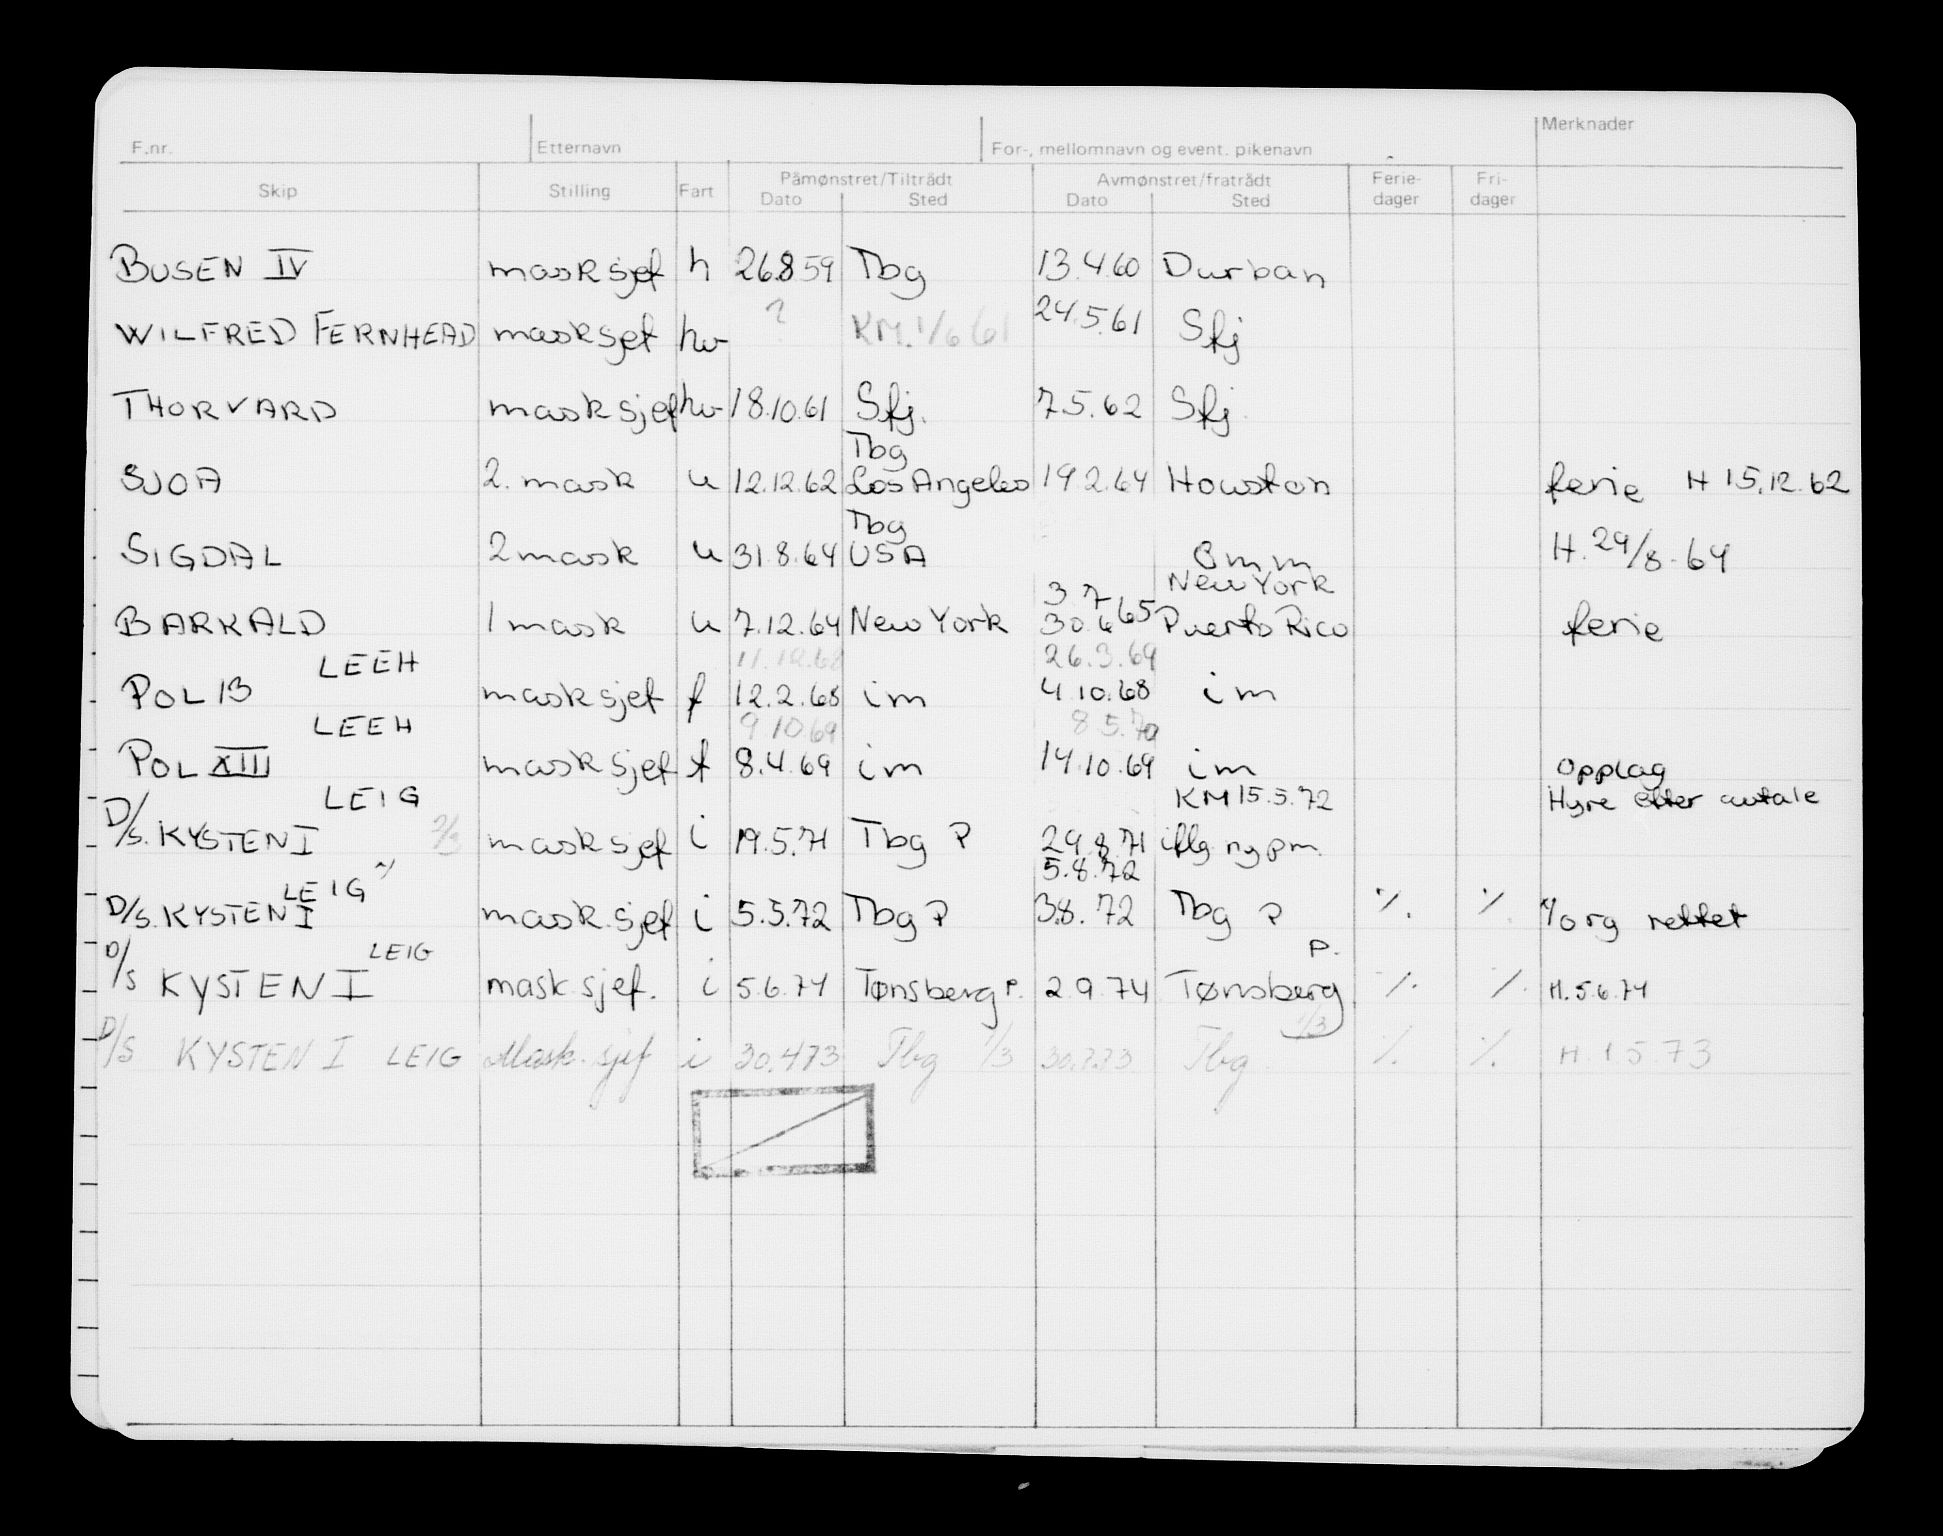 F.nr. Etternavn For-, mellomnavn og event. pikenavn Merknader
Skip Stilling Fart Påmønstret/Tiltrådt Avmønstret/fratrådt Ferie- Fri-
Dato Sted Dato Sted dager dager
BUSEN IV mask sjef h 26.8.59 Tbg 13.4.60 Durban
WILFRED FERNHEAD mask sjef hv ? KM. 1/6 61 24.5.61 Sfj
THORVARD mask sjef hv 18.10.61 Sfj. 7.5.62 Sfj.
Tbg
SJOA 2. mask u 12.12.62 Los Angeles 19.2.64 Houston ferie H 15.12.62
Tbg
SIGDAL 2 mask u 31.8.64 USA Omm H. 29/8-64
3.7 New York
BARKALD 1 mask u 7.12.64 New York 30.6 65 Puerto Rico ferie
LEEH 11.12.68 26.3.69
POL 13 mask sjef f 12.2.68 im 4.10.68 im
LEEH 9.10.69 8.5.70
POL XIII mask sjef f 8.4.69 im 14.10.69 im opplag
LEIG KM 15.5.72 Hyre etter avtale
D/S. KYSTEN I mask sjef i 19.5.71 Tbg P 29.8.71 iflg ny pm.
5.8.72
LEIG
D/S. KYSTEN I mask. sjef i 5.5.72 Tbg P 3.8.72 Tbg P % % org rettet
LEIG P.
D/S KYSTEN I mask. sjef. i 5.6.74 Tønsberg P. 2.9.74 Tønsberg % % H. 5.6.74
1/3
D/S KYSTEN I LEIG Mask. sjef i 30.4.73 Tbg 1/3 30.7.73 Tbg % % H. 1.5.73